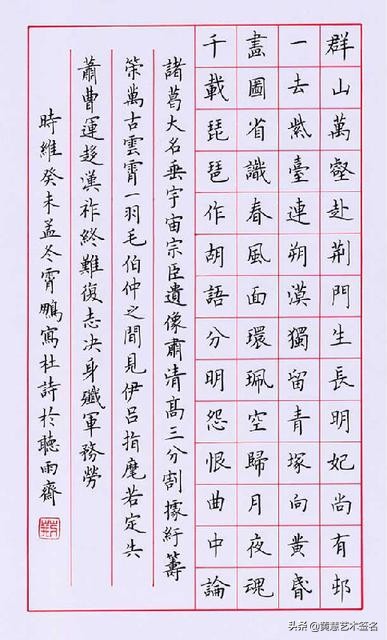 群山萬壑赴荆門生長明妃尚有邨
一去紫臺連朔漠獨留青塚向黄昏
畫圖省識春風面環珮空歸月夜魂
千載琵琶作胡語分明怨恨曲中論
諸葛大名垂宇宙宗臣遺像肅清高三分割據紆籌
策萬古雲霄一羽毛伯仲之間見伊吕指麾若定失
蕭曹運移漢祚終難復志决身殲軍務勞
時維癸未孟冬霄鵬寫杜詩於聽雨齋
头条 @黄慧艺术签名